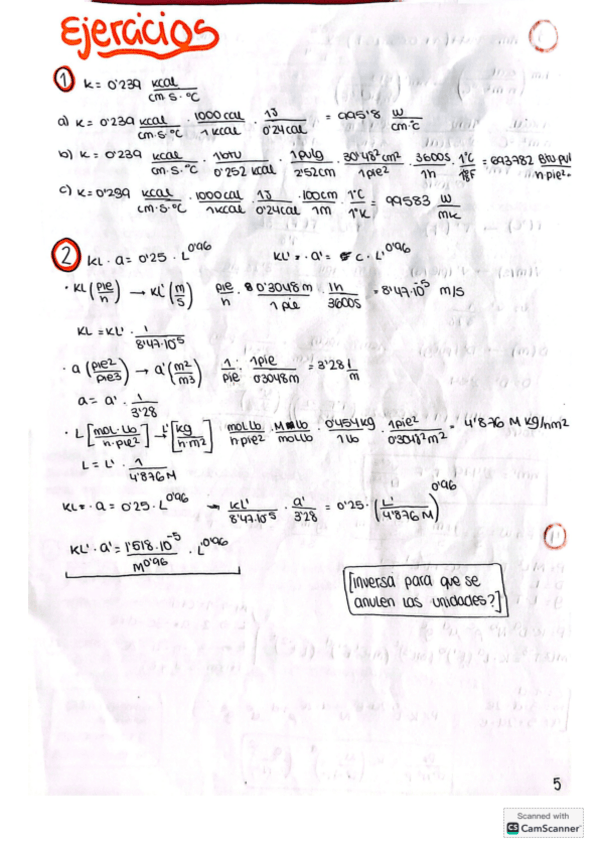 Ejercicios
① K = 0'239 kcal / cm·s·ºC
a) K = 0'239 kcal/cm·s·ºC · 1000cal/1kcal · 1J/0'24cal = 995'8 W/cm·ºC
b) K = 0'239 kcal/cm·s·ºC · 1btu/0'252 kcal · 1pulg/2'52cm · 30'48² cm²/1pie² · 3600s/1h · 1ºC/1'8ºF = 693782 Btu·pul/h·pie²·
c) K = 0'299 kcal/cm·s·ºC · 1000cal/1kcal · 1J/0'24cal · 100cm/1m · 1ºC/1ºK = 99583 W/mK
② KL · a = 0'25 · L^0'96 KL' · a' = c · L'^0'96
· KL (pie/h) → KL' (m/s) pie/h · 0'3048m/1pie · 1h/3600s = 8'47·10^-5 m/s
KL = KL' · 1/8'47·10^-5
· a (pie²/pie³) → a' (m²/m³) 1/pie · 1pie/0'3048m = 3'28 1/m
a = a' · 1/3'28
· L [mol·lb/h·pie²] → L' [kg/h·m²] mol lb/h·pie² · M lb/mol lb · 0'454kg/1lb · 1pie²/0'3048² m² = 4'876 M kg/hm²
L = L' · 1/4'876M
KL · a = 0'25 · L^0'96 → KL'/8'47·10^-5 · a'/3'28 = 0'25 · (L'/4'876 M)^0'96
KL' · a' = 1'518·10^-5/M^0'96 · L^0'96
[inversa para que se
anulen las unidades?]
5
Scanned with
CS CamScanner